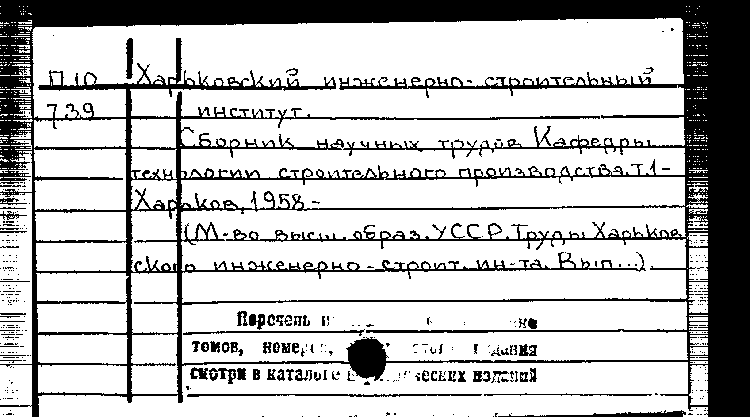 П.10 Харьковский инженерно-строительный
739 институт.
Сборник научных трудов Кафедры
технологии строительного производства. Т.1-
Харьков, 1958-
(М-во высш. образ. УССР. Труды Харьков
ского инженерно-строит. ин-та. Вып...)
Перечень
томов,
смотри в каталоге изданий